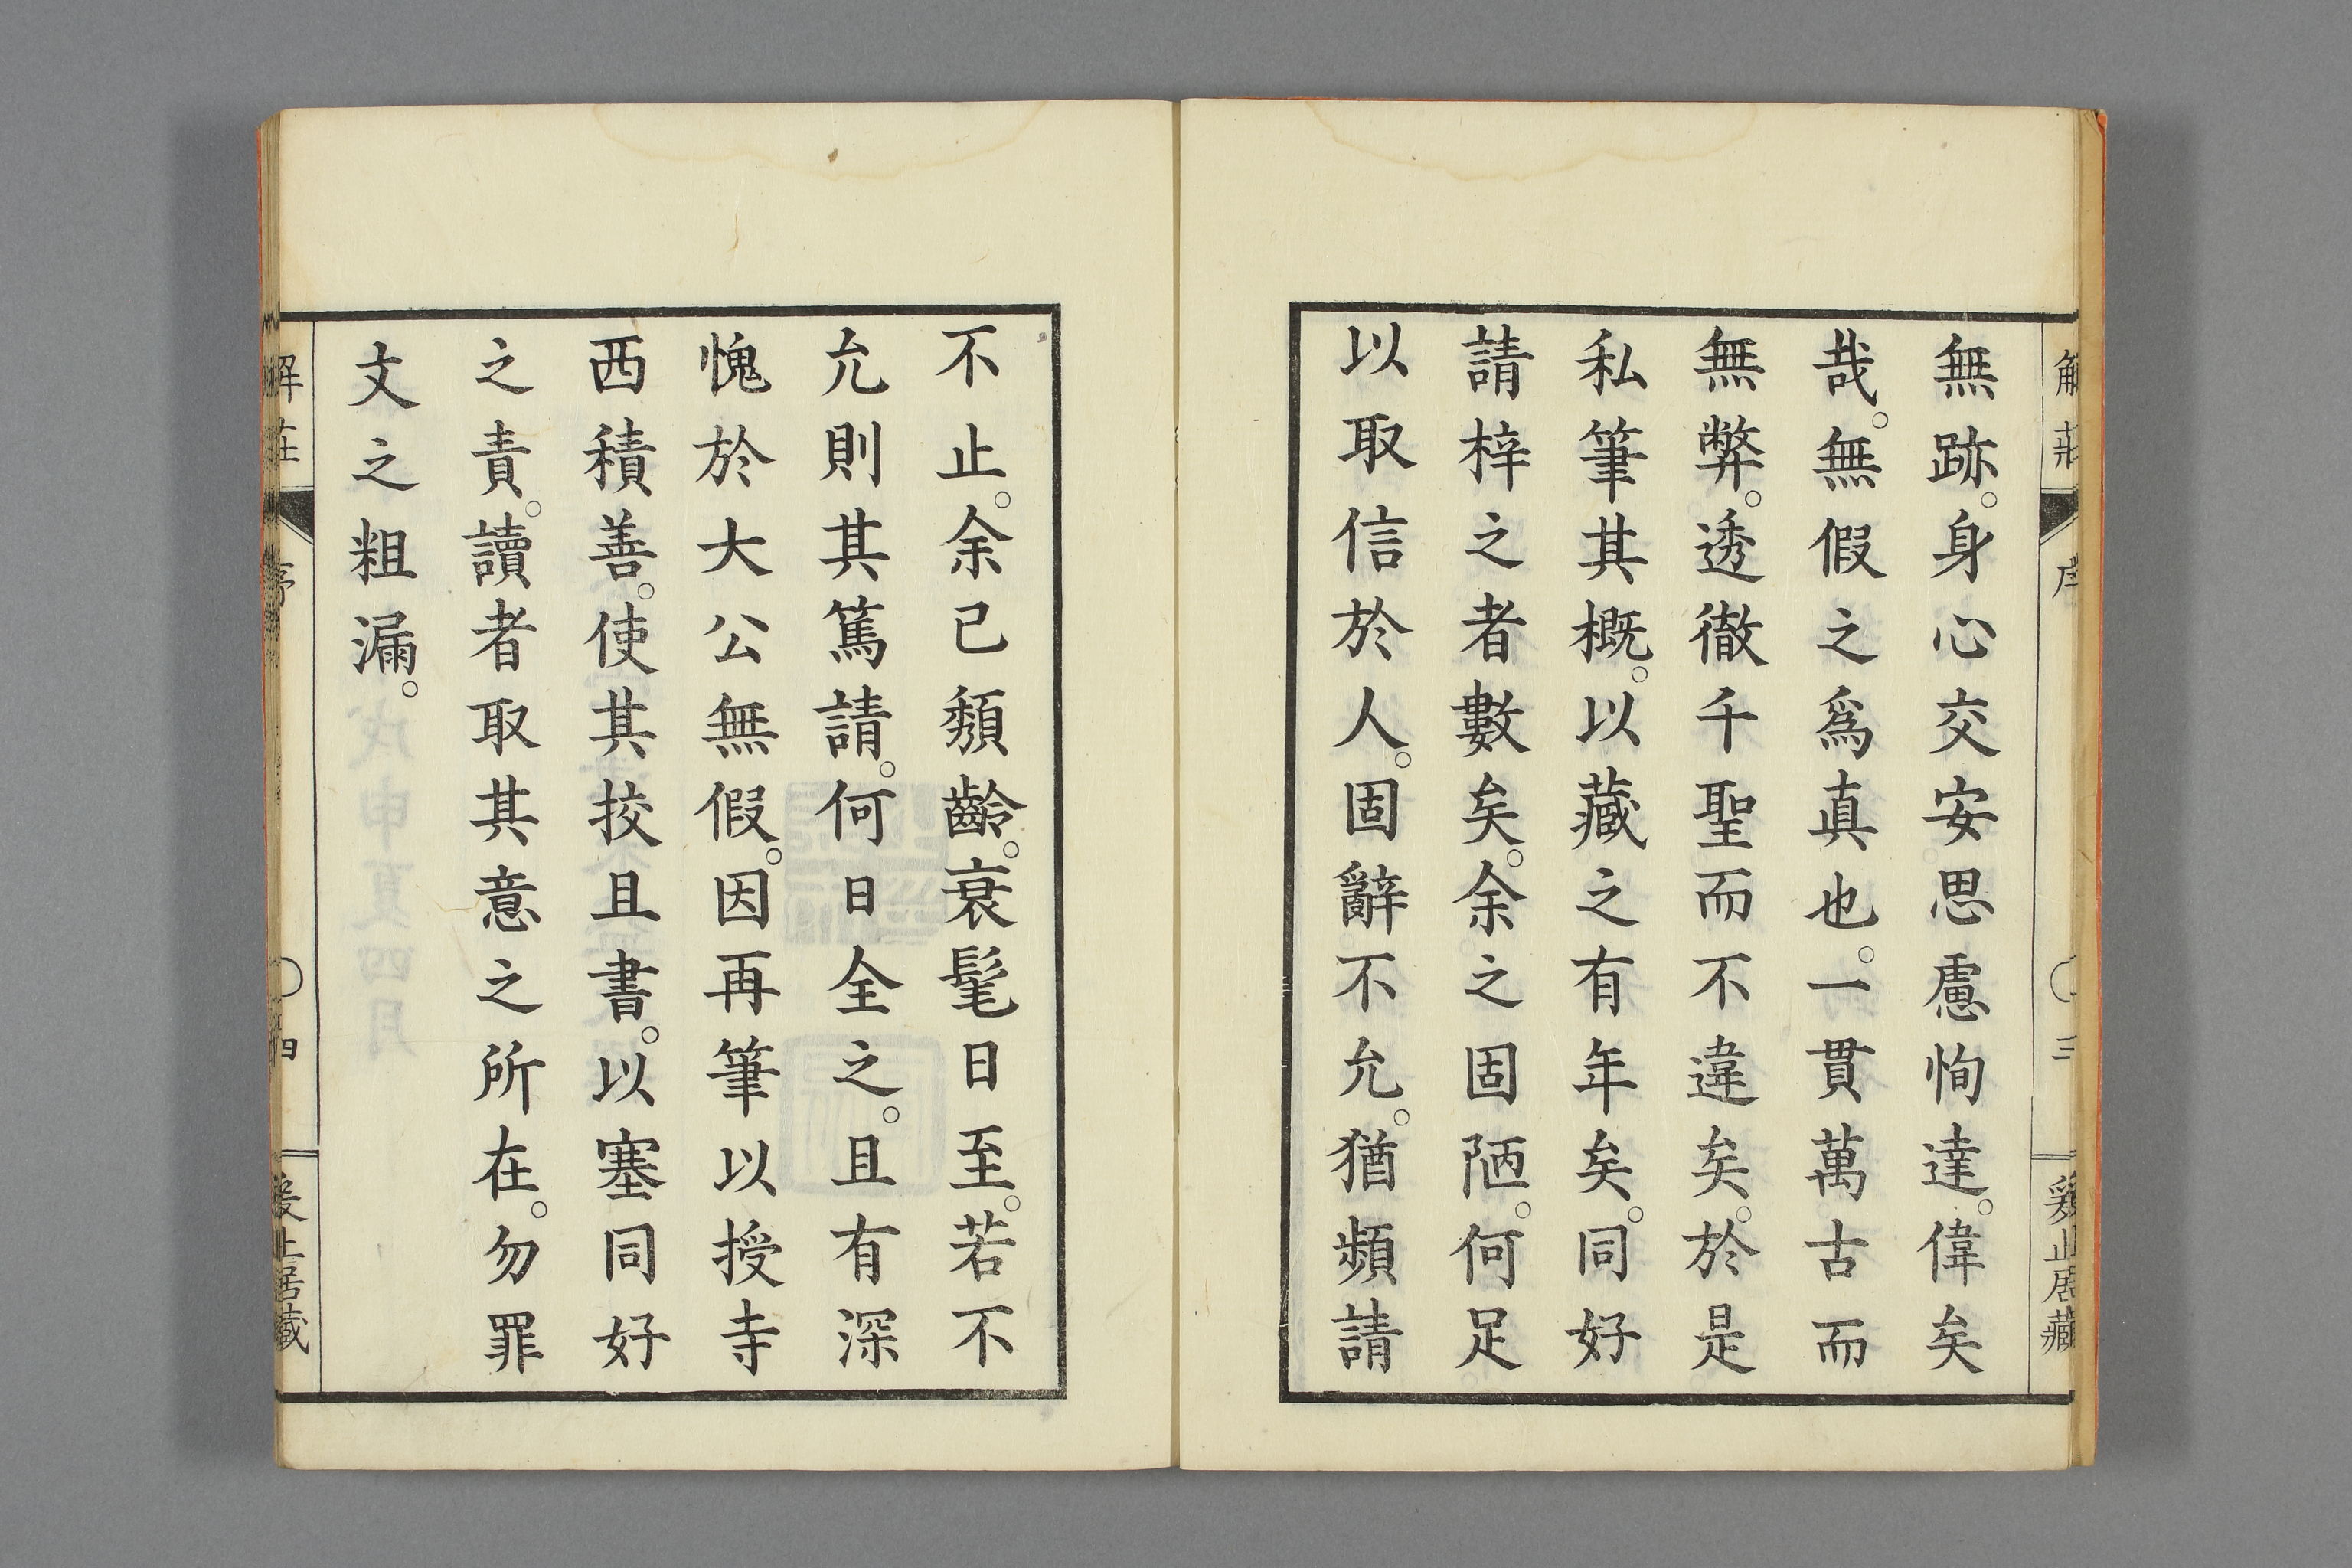 無跡。身心交安思慮恂達。偉矣
哉。無假之爲真也。一貫萬古而
無弊。透徹千聖而不違矣。於是
私筆其概。以藏之有年矣。同好
請梓之者數矣。余之固陋。何足
以取信於人。固辭不允。猶頻請
不止。余已頽齡。衰髦日至。若不
允則其篤請。何日全之。且有深
愧於大公無假。因再筆以授寺
西積善。使其挍且書。以塞同好
之責。讀者取其意之所在。勿罪
文之粗漏。
解莊
序
四